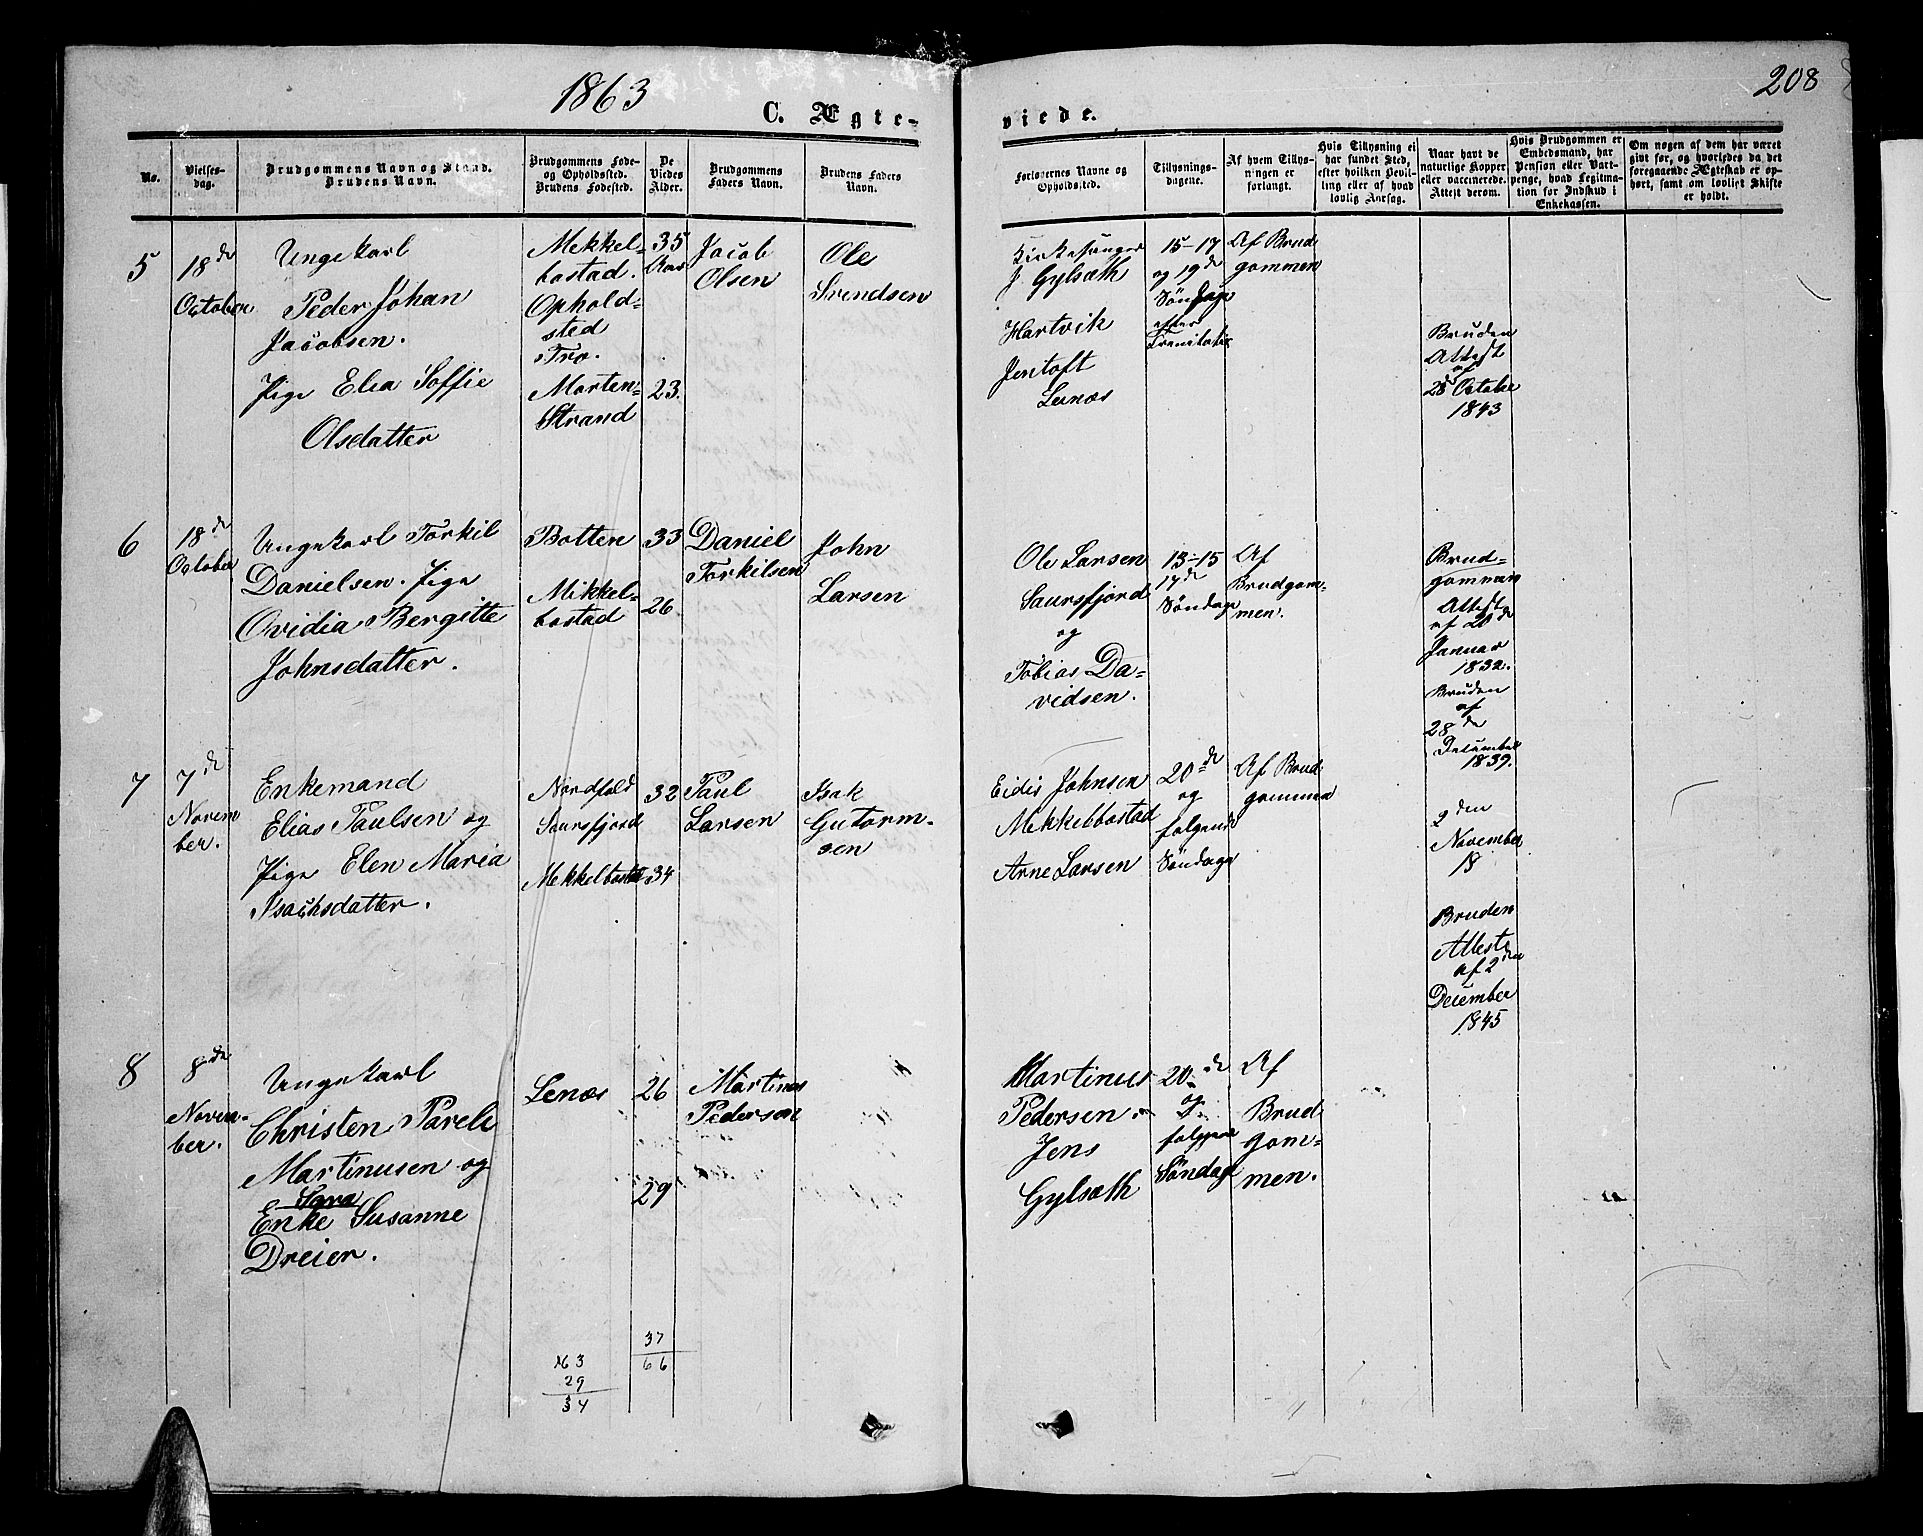 1863
208
C. Ægte-
viede.
No.
Vielses-
dag.
Brudgommens Navn og Stand.
Brudens Navn.
Brudgommens Føde-
og Opholdssted.
Brudens Fødested.
De
Viedes
Alder.
Brudgommens
Faders Navn.
Brudens Faders
Navn.
Forlovernes Navne og
Opholdssted.
Tillysnings-
dagene.
Af hvem Tillys-
ningen er
forlangt.
Hvis Tillysning ei
har fundet Sted,
efter hvilken Bevil-
ling eller af hvad
lovlig Aarsag.
Naar havt de
naturlige Kopper
eller vaccinerede.
Attest derom.
Hvis Brudgommen er
Embedsmand, har
Pension eller Vart-
penge, hvad Legitima-
tion for Indskud i
Enkekassen.
Om nogen af dem har været
givt før, og hvorledes da det
foregaaende Ægteskab er op-
hørt, samt om lovligt Skifte
er holdt.
5
18de
October
Ungekarl
Peder Johan
Jacobsen.
Pige Elea Soffie
Olsdatter
Mekkel-
bostad.
Ophold-
sted
Trø.
Morten-
Strand
35
Aar
23.
Jacob
Olsen
Ole
Svendsen
Kirkesanger
J. Gylsæth
Hartvik
Jentoft
Lenæs
15-17
og 19de
Søndage
efter
Trenitatis
Af Brud
gommen
Bruden
Attest
af
28de October
1843
6
18de
October
Ungekarl Torkil
Danielsen. Pige
Ovidia Bergitte
Johnsdatter.
Botten
Mikkel-
bostad
33
26.
Daniel
Torkilsen
John
Larsen
Ole Larsen
Saursfjord
og
Tobias Da-
vidsen.
13-15
17de
Søndage
Af
Brudgom-
men.
Brud-
gommen
Attest
af 20de
Januar
1832.
Bruden
af
28de
December
1839.
7
7de
Novem
ber.
Enkemand
Elias Paulsen og
Pige Elen Maria
Isachsdatter.
Nordfold
Saursfjord
Mekkelbostad
32
34
Paul
Larsen
Isak
Gutorm-
sen
Eidis Johnsen
Mekkelbostad
Arne Larsen
20de
og
følgende
Søndage
Af Brud
gommen
2den
November
18
Bruden
Attest
af 2den
December
1845
8
8de
Novem-
ber.
Ungekarl
Christen Pareli
Martinusen og
Sara
Enke Susanne
Dreier.
Lenæs
26
29
Martinus
Pedersen
Martinus
Pedersen
Jens
Gylsæth
20de
og
Søndage
Af
Brud
gom-
men.
37
66
63
29
34